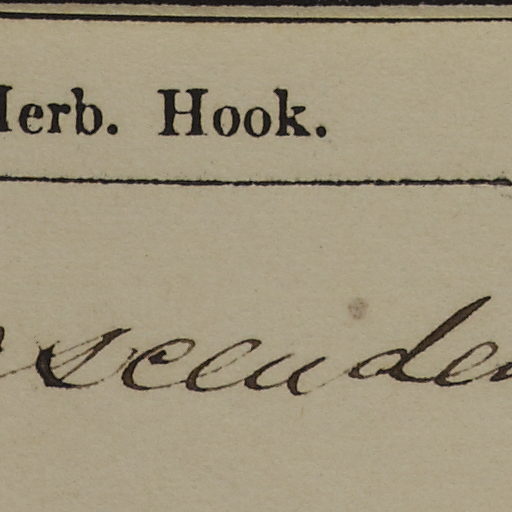 Herb. Hook.
scenden